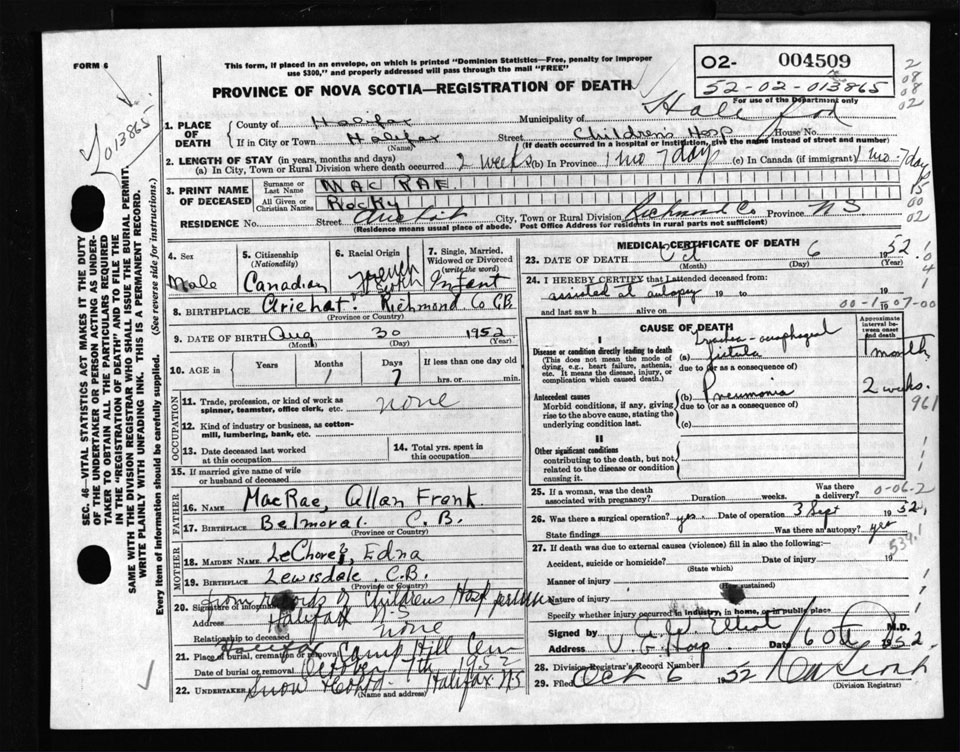 FORM 6
This form, if placed in an envelope, on which is printed "Dominion Statistics—Free, penalty for improper
use $300," and properly addressed will pass through the mail "FREE"
PROVINCE OF NOVA SCOTIA—REGISTRATION OF DEATH
O2- 004509
52-02-013865
For use of the Department only
2
08
08
02
013865
1. PLACE OF DEATH
County of Halifax Municipality of
If in City or Town Halifax Street Childrens Hosp House No.
(Name) (If death occurred in a hospital or institution, give the name instead of street and number)
2. LENGTH OF STAY (in years, months and days)
(a) In City, Town or Rural Division where death occurred 2 weeks (b) In Province 1 mo 7 days (c) In Canada (if immigrant) 1 mo 7 days
3. PRINT NAME OF DECEASED
Surname or Last Name MAC RAE
All Given or Christian Names Rocky
RESIDENCE No. Street City, Town or Rural Division Richmond Co Province N S
(Residence means usual place of abode. Post Office Address for residents in rural parts not sufficient)
15
00
02
SEC. 46—VITAL STATISTICS ACT MAKES IT THE DUTY
OF THE UNDERTAKER OR PERSON ACTING AS UNDER-
TAKER TO OBTAIN ALL THE PARTICULARS REQUIRED
IN THE "REGISTRATION OF DEATH" AND TO FILE THE
SAME WITH THE DIVISION REGISTRAR WHO SHALL ISSUE THE BURIAL PERMIT.
WRITE PLAINLY WITH UNFADING INK. THIS IS A PERMANENT RECORD.
Every item of information should be carefully supplied. (See reverse side for instructions.)
4. Sex
Male
5. Citizenship
(Nationality)
Canadian
6. Racial Origin
French
7. Single, Married,
Widowed or Divorced
(write the word)
Infant
8. BIRTHPLACE Arichat Richmond Co CB
(Province or Country)
9. DATE OF BIRTH Aug 30 1952
(Month) (Year)
10. AGE in Years Months Days If less than one day old
1 7 hrs. or min.
OCCUPATION
11. Trade, profession, or kind of work as
spinner, teamster, office clerk, etc. none
12. Kind of industry or business, as cotton-
mill, lumbering, bank, etc.
13. Date deceased last worked
at this occupation
14. Total yrs. spent in
this occupation
15. If married give name of wife
or husband of deceased
FATHER
16. NAME MacRae, Allan Frank
17. BIRTHPLACE Belmoral C. B.
(Province or Country)
MOTHER
18. MAIDEN NAME Edna
19. BIRTHPLACE Lewisdale C.B.
(Province or Country)
from records of Childrens Hosp
20. Signature of informant
Address Halifax N S
Relationship to deceased none
21. Place of burial, cremation or removal Halifax Camp Hill Cem
Date of burial or removal October 7th 1952
22. Undertaker Snow & Co Ltd Halifax N S
(Name and address)
MEDICAL CERTIFICATE OF DEATH
23. DATE OF DEATH Oct 6 1952
(Month) (Day) (Year)
24. I HEREBY CERTIFY that I attended deceased from:
assisted at autopsy 19 to 19
and last saw h alive on 19
00-1 07-00
CAUSE OF DEATH
Approximate
interval be-
tween onset
and death
I
Disease or condition directly leading to death
(This does not mean the mode of
dying, e.g., heart failure, asthenia,
etc. It means the disease, injury, or
complication which caused death.)
(a) Trachea-oesophageal fistula 1 month
due to (or as a consequence of)
Antecedent causes
Morbid conditions, if any, giving
rise to the above cause, stating the
underlying condition last.
(b) Pneumonia 2 weeks.
due to (or as a consequence of)
961
(c)
II
Other significant conditions
contributing to the death, but not
related to the disease or condition
causing it.
25. If a woman, was the death
associated with pregnancy? Duration weeks. Was there
a delivery?
0-06-2
26. Was there a surgical operation? yes Date of operation 3 Sept 1952
State findings Was there an autopsy? yes
27. If death was due to external causes (violence) fill in also the following:—
Accident, suicide or homicide? Date of injury 19
(State which)
Manner of injury
(How sustained)
Nature of injury
Specify whether injury occurred in industry, in home, or in public place
Signed by Elliot M.D.
Address V G Hosp Date 6 Oct 1952
28. Division Registrar's Record Number
29. Filed Oct 6 1952
(Division Registrar)